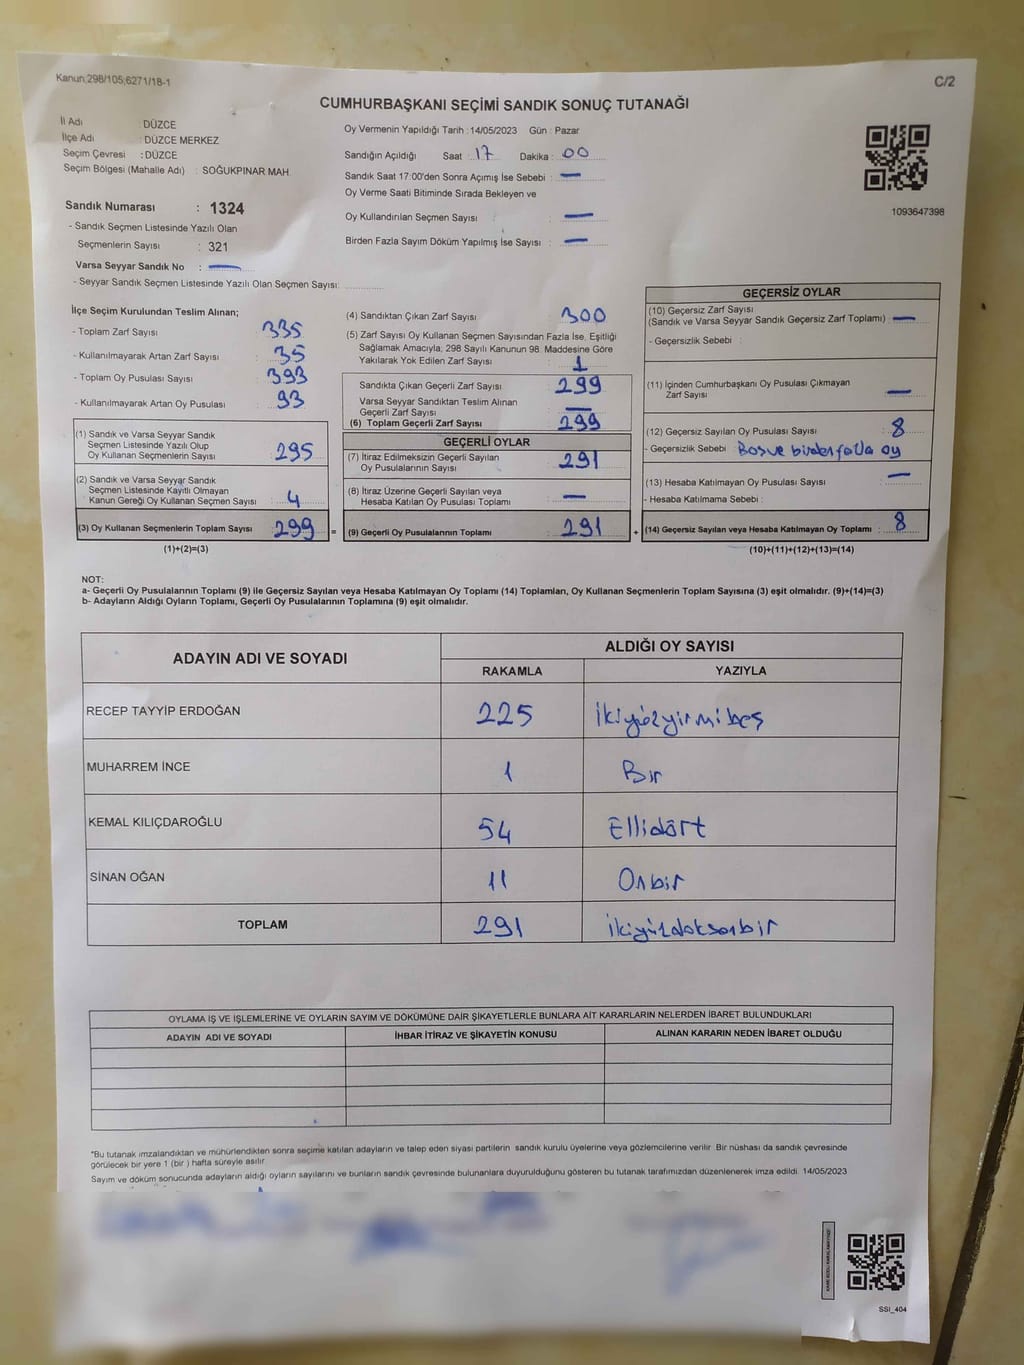 Kanun;298/105;6271/18-1
C/2
CUMHURBAŞKANI SEÇİMİ SANDIK SONUÇ TUTANAĞI
İl Adı : DÜZCE
İlçe Adı : DÜZCE MERKEZ
Seçim Çevresi : DÜZCE
Seçim Bölgesi (Mahalle Adı) : SOĞUKPINAR MAH.
Sandık Numarası : 1324
- Sandık Seçmen Listesinde Yazılı Olan
Seçmenlerin Sayısı : 321
Varsa Seyyar Sandık No : —
- Seyyar Sandık Seçmen Listesinde Yazılı Olan Seçmen Sayısı:
Oy Vermenin Yapıldığı Tarih : 14/05/2023 Gün : Pazar
Sandığın Açıldığı Saat : 17 Dakika : 00
Sandık Saat 17:00'den Sonra Açımış İse Sebebi : —
Oy Verme Saati Bitiminde Sırada Bekleyen ve
Oy Kullandırılan Seçmen Sayısı : —
Birden Fazla Sayım Döküm Yapılmış İse Sayısı : —
1093647398
İlçe Seçim Kurulundan Teslim Alınan;
- Toplam Zarf Sayısı : 335
- Kullanılmayarak Artan Zarf Sayısı : 35
- Toplam Oy Pusulası Sayısı : 393
- Kullanılmayarak Artan Oy Pusulası : 93
(1) Sandık ve Varsa Seyyar Sandık
Seçmen Listesinde Yazılı Olup
Oy Kullanan Seçmenlerin Sayısı : 295
(2) Sandık ve Varsa Seyyar Sandık
Seçmen Listesinde Kayıtlı Olmayan
Kanun Gereği Oy Kullanan Seçmen Sayısı : 4
(3) Oy Kullanan Seçmenlerin Toplam Sayısı : 299 =
(1)+(2)=(3)
(4) Sandıktan Çıkan Zarf Sayısı : 300
(5) Zarf Sayısı Oy Kullanan Seçmen Sayısından Fazla İse, Eşitliği
Sağlamak Amacıyla, 298 Sayılı Kanunun 98. Maddesine Göre
Yakılarak Yok Edilen Zarf Sayısı : 1
Sandıkta Çıkan Geçerli Zarf Sayısı : 299
Varsa Seyyar Sandıktan Teslim Alınan
Geçerli Zarf Sayısı : —
(6) Toplam Geçerli Zarf Sayısı : 299
GEÇERLİ OYLAR
(7) İtiraz Edilmeksizin Geçerli Sayılan
Oy Pusulalarının Sayısı : 291
(8) İtiraz Üzerine Geçerli Sayılan veya
Hesaba Katılan Oy Pusulası Toplamı : —
(9) Geçerli Oy Pusulalarının Toplamı : 291 +
GEÇERSİZ OYLAR
(10) Geçersiz Zarf Sayısı
(Sandık ve Varsa Seyyar Sandık Geçersiz Zarf Toplamı) : —
- Geçersizlik Sebebi :
(11) İçinden Cumhurbaşkanı Oy Pusulası Çıkmayan
Zarf Sayısı : —
(12) Geçersiz Sayılan Oy Pusulası Sayısı : 8
- Geçersizlik Sebebi : Boş ve birden fazla oy
(13) Hesaba Katılmayan Oy Pusulası Sayısı : —
- Hesaba Katılmama Sebebi :
(14) Geçersiz Sayılan veya Hesaba Katılmayan Oy Toplamı : 8
(10)+(11)+(12)+(13)=(14)
NOT:
a- Geçerli Oy Pusulalarının Toplamı (9) ile Geçersiz Sayılan veya Hesaba Katılmayan Oy Toplamı (14) Toplamları, Oy Kullanan Seçmenlerin Toplam Sayısına (3) eşit olmalıdır. (9)+(14)=(3)
b- Adayların Aldığı Oyların Toplamı, Geçerli Oy Pusulalarının Toplamına (9) eşit olmalıdır.
ADAYIN ADI VE SOYADI
ALDIĞI OY SAYISI
RAKAMLA YAZIYLA
RECEP TAYYİP ERDOĞAN 225 İkiyüzyirmibeş
MUHARREM İNCE 1 Bir
KEMAL KILIÇDAROĞLU 54 Ellidört
SİNAN OĞAN 11 Onbir
TOPLAM 291 İkiyüzdoksanbir
OYLAMA İŞ VE İŞLEMLERİNE VE OYLARIN SAYIM VE DÖKÜMÜNE DAİR ŞİKAYETLERLE BUNLARA AİT KARARLARIN NELERDEN İBARET BULUNDUKLARI
ADAYIN ADI VE SOYADI İHBAR İTİRAZ VE ŞİKAYETİN KONUSU ALINAN KARARIN NEDEN İBARET OLDUĞU
*Bu tutanak imzalandıktan ve mühürlendikten sonra seçime katılan adayların ve talep eden siyasi partilerin sandık kurulu üyelerine veya gözlemcilerine verilir. Bir nüshası da sandık çevresinde
görülecek bir yere 1 (bir ) hafta süreyle asılır.
Sayım ve döküm sonucunda adayların aldığı oyların sayılarını ve bunların sandık çevresinde bulunanlara duyurulduğunu gösteren bu tutanak tarafımızdan düzenlenerek imza edildi. 14/05/2023
SSI_404